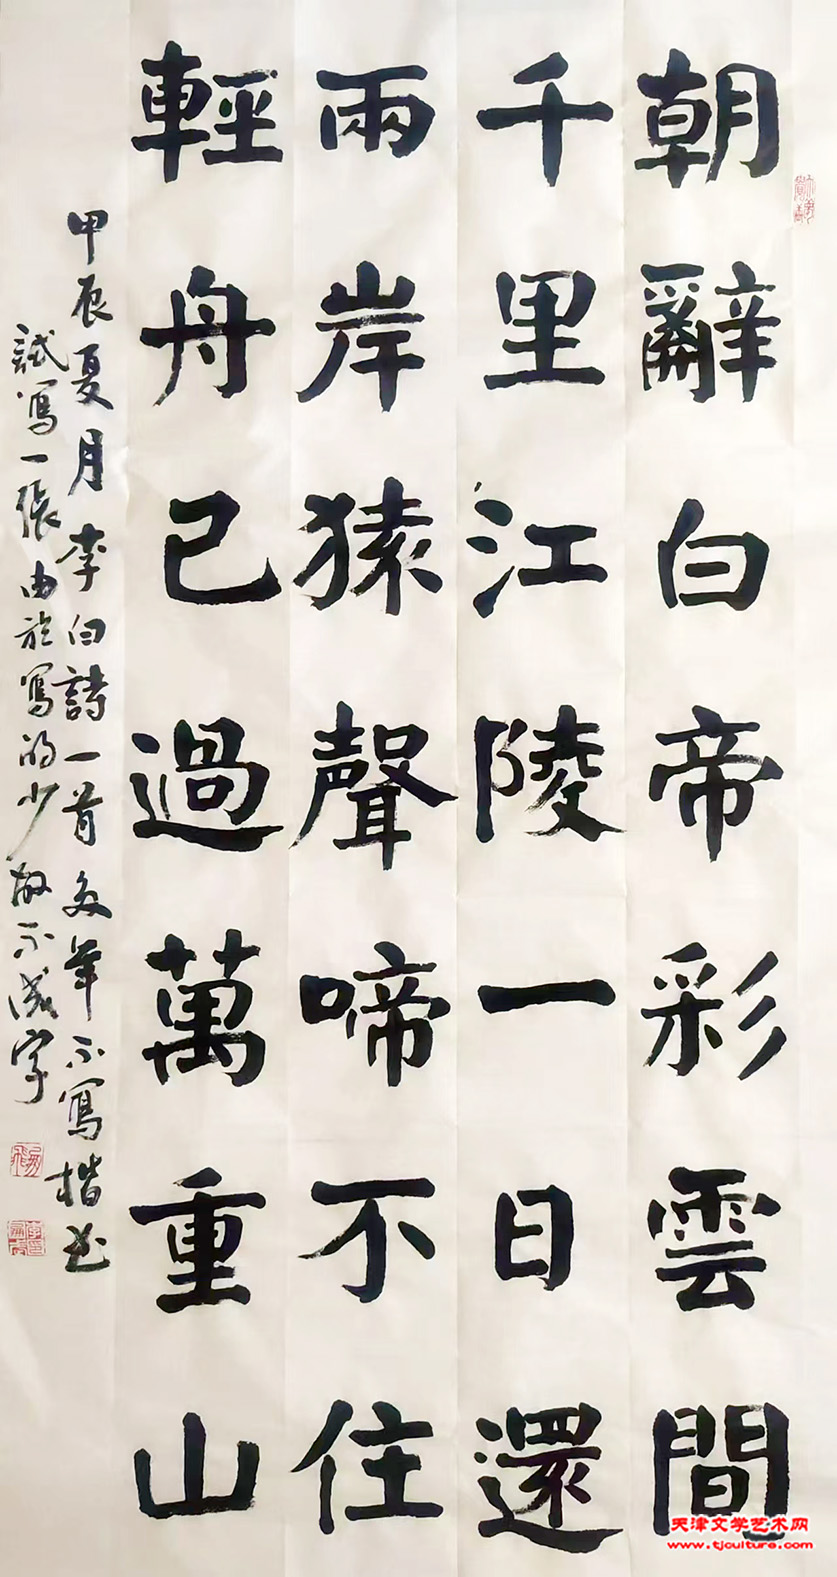 朝辭白帝彩雲間
千里江陵一日還
兩岸猿聲啼不住
輕舟已過萬重山
甲辰夏月李白詩一首多年不寫楷书
試寫一張由於寫的少故不成字
天津文学艺术网
www.tjculture.com